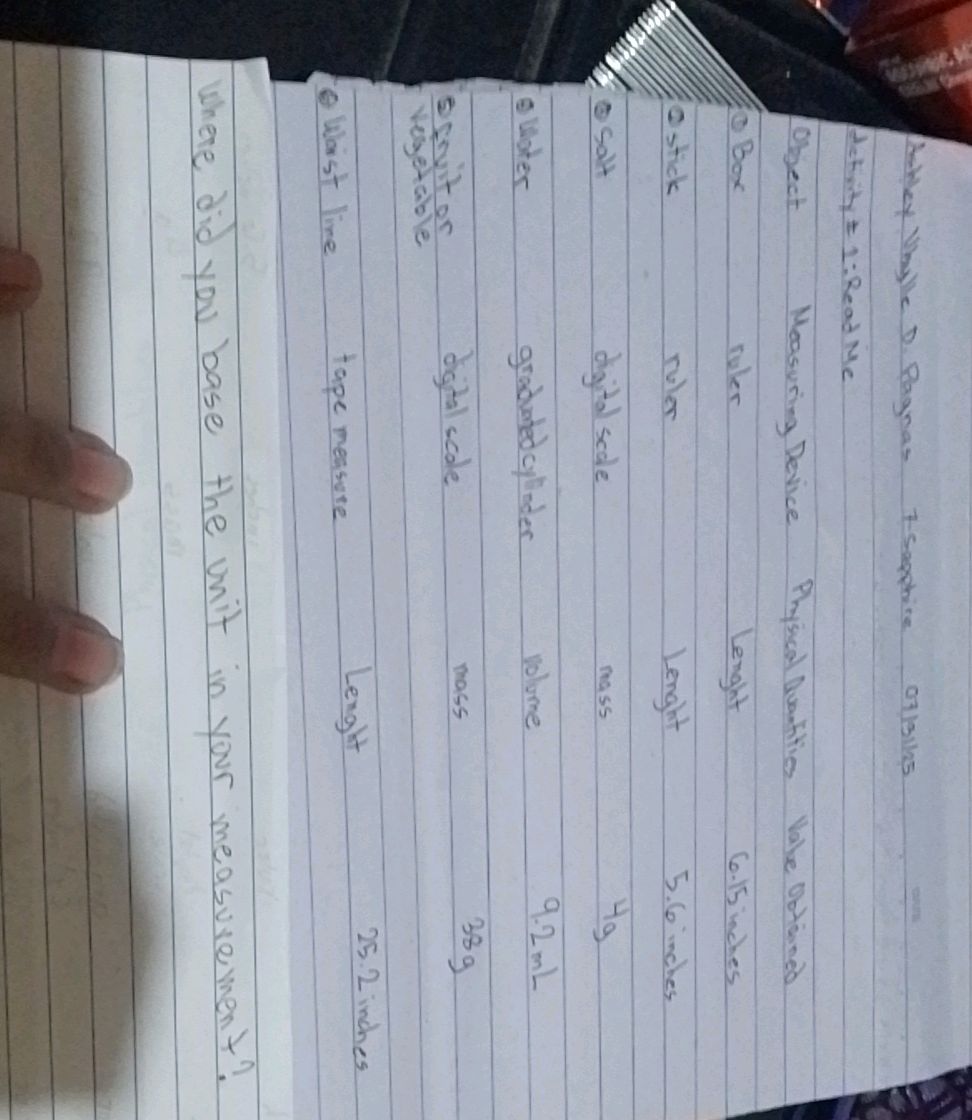 Vhylle D. Pagnas 7-Sapphire 07/31/25
Activity # 1: Read Me
Object Measuring Device Physical Quantities Value Obtained
① Box ruler Lenght 6.15 inches
② stick ruler Lenght 5.6 inches
③ Salt digital scale mass 4g
④ Water graduated cylinder volume 9.2 mL
⑤ Fruit or digital scale mass 38g
vegetable
⑥ Waist line tape measure Lenght 25.2 inches
Where did you base the unit in your measurement?